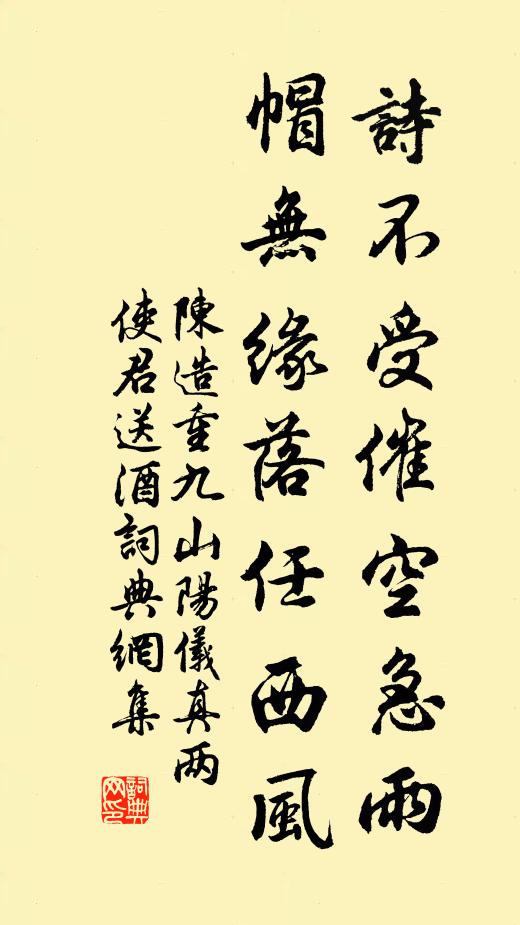 詩不受催空急雨
帽無緣落任西風
陳造重九山陽儀真两
使君送酒詞典網集
詞典网印